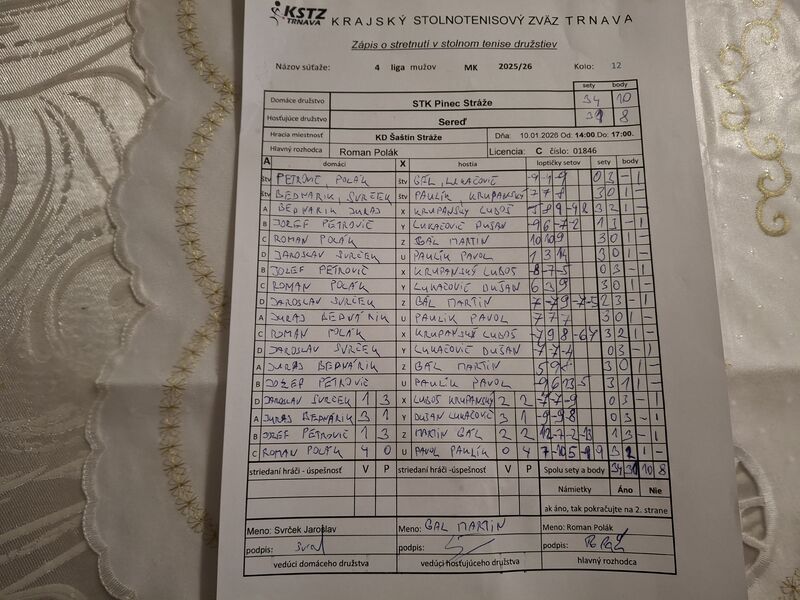 KSTZ TRNAVA KRAJSKÝ STOLNOTENISOVÝ ZVÄZ TRNAVA
Zápis o stretnutí v stolnom tenise družstiev
Názov súťaže: 4 liga mužov MK 2025/26 Kolo: 12
sety body
Domáce družstvo STK Pinec Stráže 34 10
Hosťujúce družstvo Sereď 8
Hracia miestnosť KD Šaštín Stráže Dňa: 10.01.2026 Od: 14:00 Do: 17:00.
Hlavný rozhodca Roman Polák Licencia: C číslo: 01846
A domáci X hostia loptičky setov sety body
štv PETROVIČ, POLÁK štv GÁL, LUKAČOVIČ -9-1-9 0 3 - 1
štv BEDNÁRIK, SVRČEK štv PAULÍK, KRUPANSKÝ 7 7 8 3 0 1 -
A BEDNÁRIK JURAJ X KRUPANSKÝ ĽUBOŠ 3 2 1 -
B JOZEF PETROVIČ Y LUKAČOVIČ DUŠAN -9 6 -7 -2 1 3 - 1
C ROMAN POLÁK Z GÁL MARTIN 10 10 9 3 0 1 -
D JAROSLAV SVRČEK U PAULÍK PAVOL 1 3 14 3 0 1 -
B JOZEF PETROVIČ X KRUPANSKÝ ĽUBOŠ -8-7-5 0 3 - 1
C ROMAN POLÁK Y LUKAČOVIČ DUŠAN 6 3 9 3 0 1 -
D JAROSLAV SVRČEK Z GÁL MARTIN 7 -7 9 -7 -5 2 3 - 1
A JURAJ BEDNÁRIK U PAULÍK PAVOL 7 7 7 3 0 1 -
C ROMAN POLÁK X KRUPANSKÝ ĽUBOŠ -7 9 8 -6 7 3 2 1 -
D JAROSLAV SVRČEK Y LUKAČOVIČ DUŠAN -7-7-4 0 3 - 1
A JURAJ BEDNÁRIK Z GÁL MARTIN 3 0 1 -
B JOZEF PETROVIČ U PAULÍK PAVOL 3 1 1 -
D JAROSLAV SVRČEK 1 3 X ĽUBOŠ KRUPANSKÝ 2 2 -7-7-9 0 3 - 1
A JURAJ BEDNÁRIK 3 1 Y DUŠAN LUKAČOVIČ 3 1 -9-9-8 0 3 - 1
B JOZEF PETROVIČ 1 3 Z MARTIN GÁL 2 2 12 -7 -2 -13 1 3 - 1
C ROMAN POLÁK 4 0 U PAVOL PAULÍK 0 4 3 2 1 -
striedaní hráči - úspešnosť V P striedaní hráči -úspešnosť V P Spolu sety a body 34 10 8
Námietky Áno Nie
ak áno, tak pokračujte na 2. strane
Meno: Svrček Jaroslav Meno: GÁL MARTIN Meno: Roman Polák
podpis: podpis: podpis:
vedúci domáceho družstva vedúci hosťujúceho družstva hlavný rozhodca